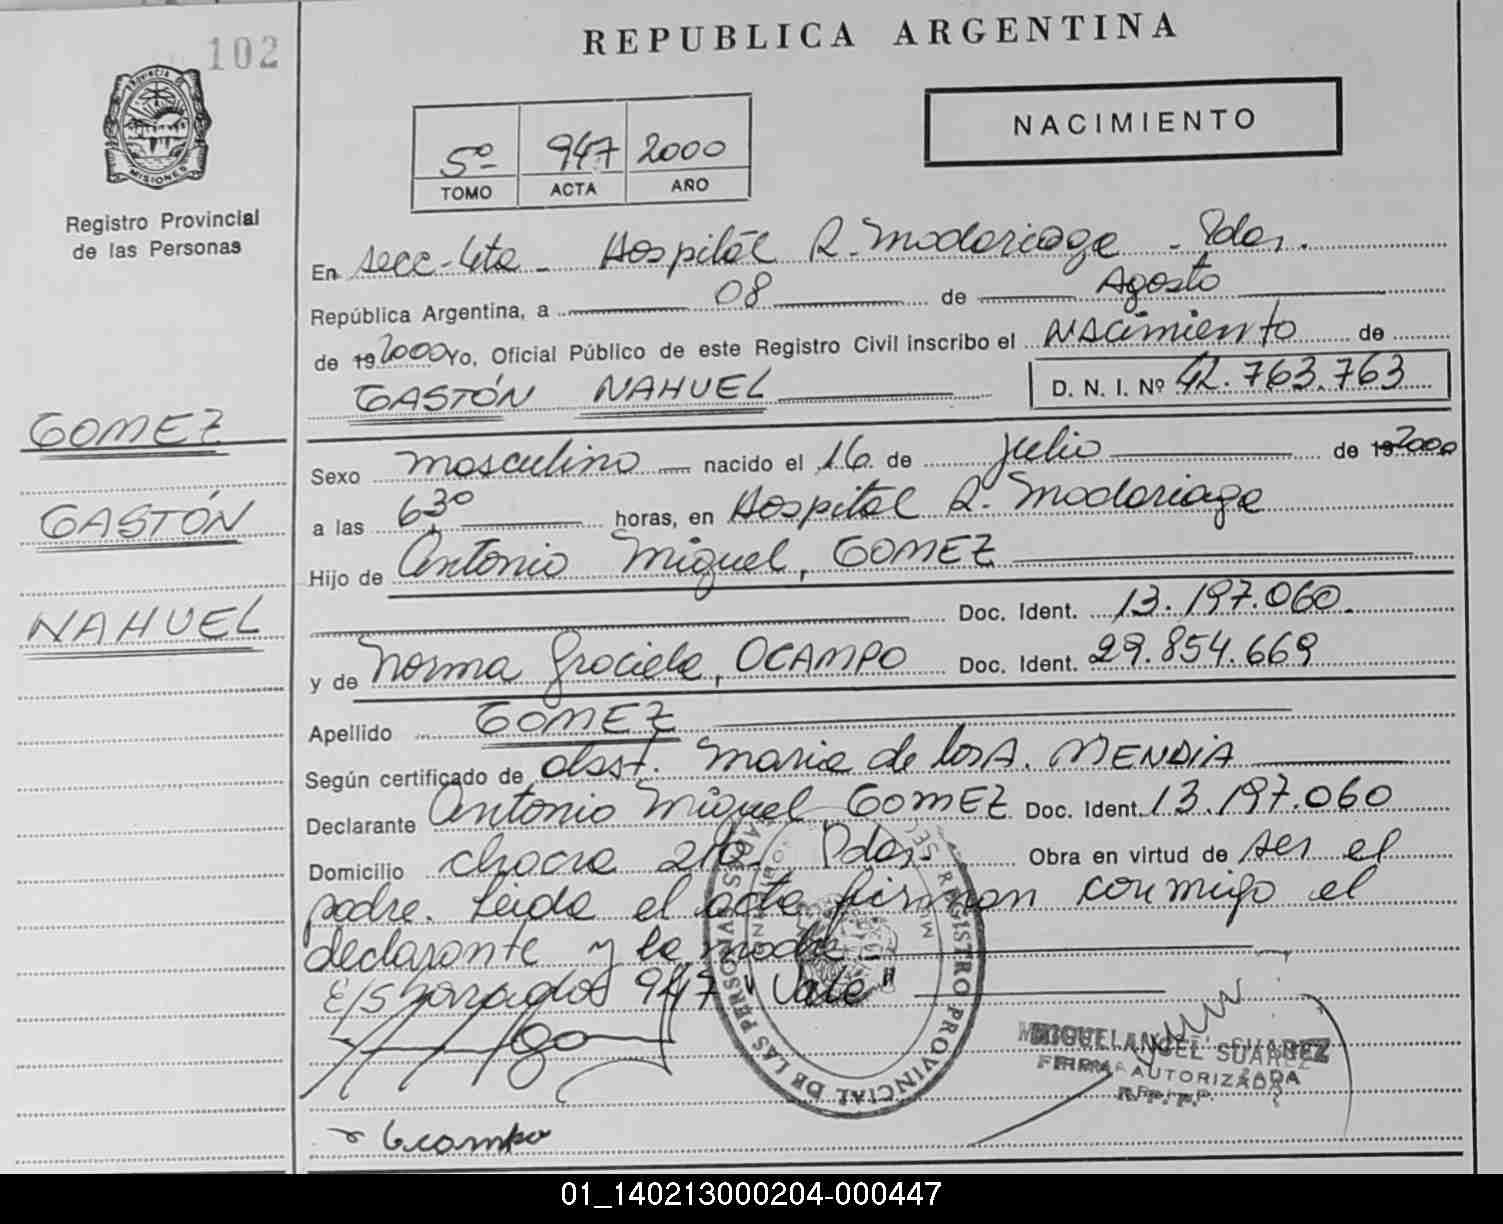 102
REPUBLICA ARGENTINA
PROVINCIA DE
MISIONES
Registro Provincial
de las Personas
NACIMIENTO
5º 947 2000
TOMO ACTA AÑO
En secc-4ta - Hospital R. Madariaga - Pdas.
República Argentina, a 08 de Agosto
de 19 2000 Yo, Oficial Público de este Registro Civil inscribo el Nacimiento de
GASTÓN NAHUEL D. N. I. Nº 42.763.763
GOMEZ
GASTÓN
NAHUEL
Sexo masculino nacido el 16 de julio de 19 2000
a las 630 horas, en Hospital R. Madariaga
Hijo de Antonio Miguel, GOMEZ
Doc. Ident. 13.197.060.
y de Norma Graciela, OCAMPO Doc. Ident. 29.854.669
Apellido GOMEZ
Según certificado de obst. Maria de los A. MENDIA
Declarante Antonio Miguel GOMEZ Doc. Ident. 13.197.060
Domicilio chacra Pdas. Obra en virtud de ser el
padre. Leida el acta firman conmigo el
declarante y la madre
E/S borrados 947 "Vale"
REGISTRO PROVINCIAL DE LAS PERSONAS
MIGUEL ANGEL SUAREZ
FIRMA AUTORIZADA
R.P.P.
Ocampo
01_140213000204-000447